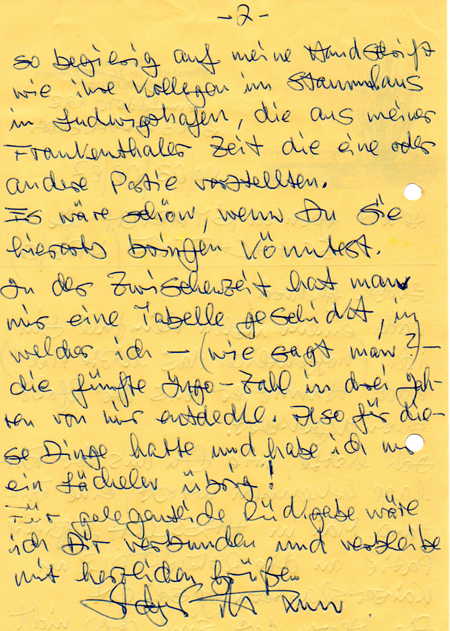 - 2 -
so begierig auf meine Handschrift
wie ihre Kollegen im Stammhaus
in Ludwigshafen, die aus meiner
Frankenthaler Zeit die eine oder
andere Partie vorstellten.
Es wäre schön, wenn Du Sie
hierorts bringen könntest.
In der Zwischenzeit hat man
mir eine Tabelle geschickt, in
welcher ich – (wie sagt man?) –
die fünfte Ingo-Zahl in drei Jah-
ren von mir entdecke. Also für die-
se Dinge hatte und habe ich nur
ein Lächeln übrig!
Für gelegentliche Rückgabe wäre
ich Dir verbunden und verbleibe
mit herzlichen Grüßen